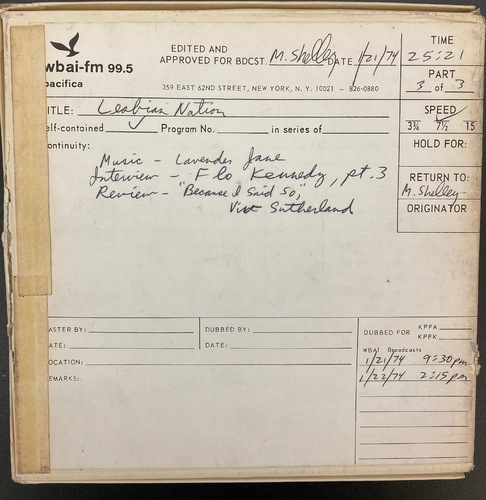 wbai-fm 99.5
pacifica
EDITED AND
APPROVED FOR BDCST. M. Shelley DATE 1/21/74
359 EAST 62ND STREET, NEW YORK, N. Y. 10021 — 826-0880
TIME
25:21
PART
3 of 3
SPEED
3¾ 7½ 15
HOLD FOR:
RETURN TO:
M. Shelley
ORIGINATOR
ITLE: Lesbian Nation
elf-contained Program No. in series of
ontinuity:
Music - Lavender Jane
Interview - Flo Kennedy, pt. 3
Review - "Because I Said So,"
Sutherland
ASTER BY:
ATE:
OCATION:
EMARKS:
DUBBED BY:
DATE:
DUBBED FOR KPFA
KPFK
WBAI Broadcasts
1/21/74 9:30 pm
1/22/74 2:15 pm